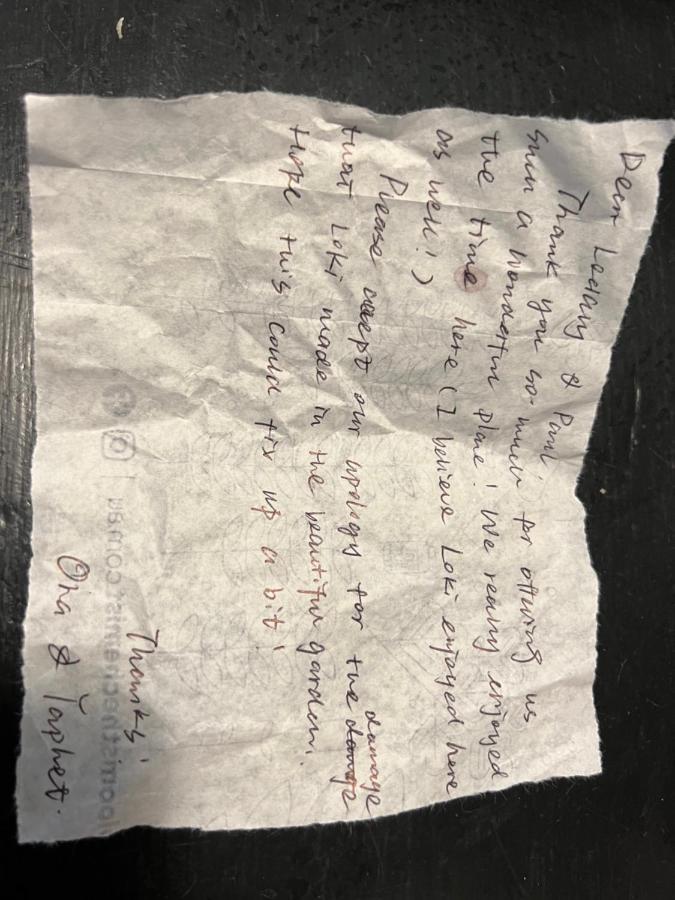 Dear Leeany & Paul
Thank you so much for offering us
such a wonderful place! We really enjoyed
the time here (I believe Loki enjoyed here
as well!)
Please accept our apology for the damage
that Loki made in the beautiful garden.
Hope this could fix up a bit!
Thanks!
Ora & Yaphet.